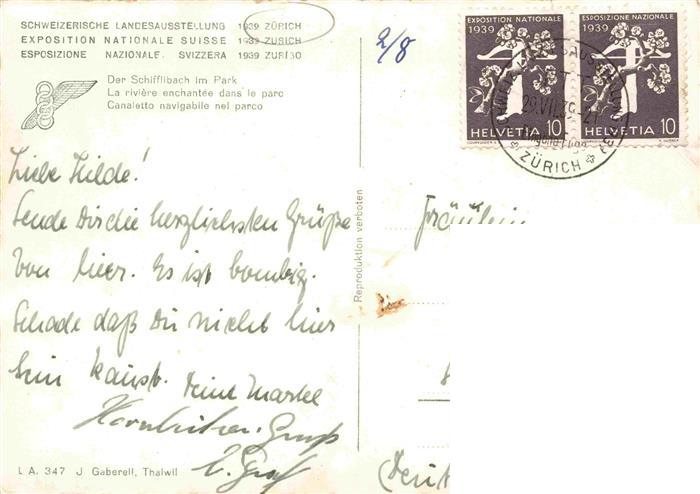 SCHWEIZERISCHE LANDESAUSSTELLUNG 1939 ZÜRICH
EXPOSITION NATIONALE SUISSE 1939 ZURICH
ESPOSIZIONE NAZIONALE SVIZZERA 1939 ZURIGO
2/8
Der Schifflibach im Park
La rivière enchantée dans le parc
Canaletto navigabile nel parco
Liebe Hilde!
Sende Dir die herzlichsten Grüße
von hier. Es ist bombig.
Schade daß Du nicht hier
sein kannst. Deine
Gruß
L A. 347 J. Gaberell, Thalwil
Reproduktion verboten
EXPOSITION NATIONALE
1939
HELVETIA 10
ESPOSIZIONE NAZIONALE
1939
HELVETIA 10
ZÜRICH
Fräulein
(Deut